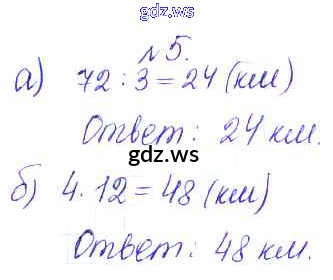 gdz.ws
№5.
а) 72 : 3 = 24 (км)
Ответ: 24 км.
gdz.ws
б) 4 · 12 = 48 (км)
Ответ: 48 км.
gdz.ws